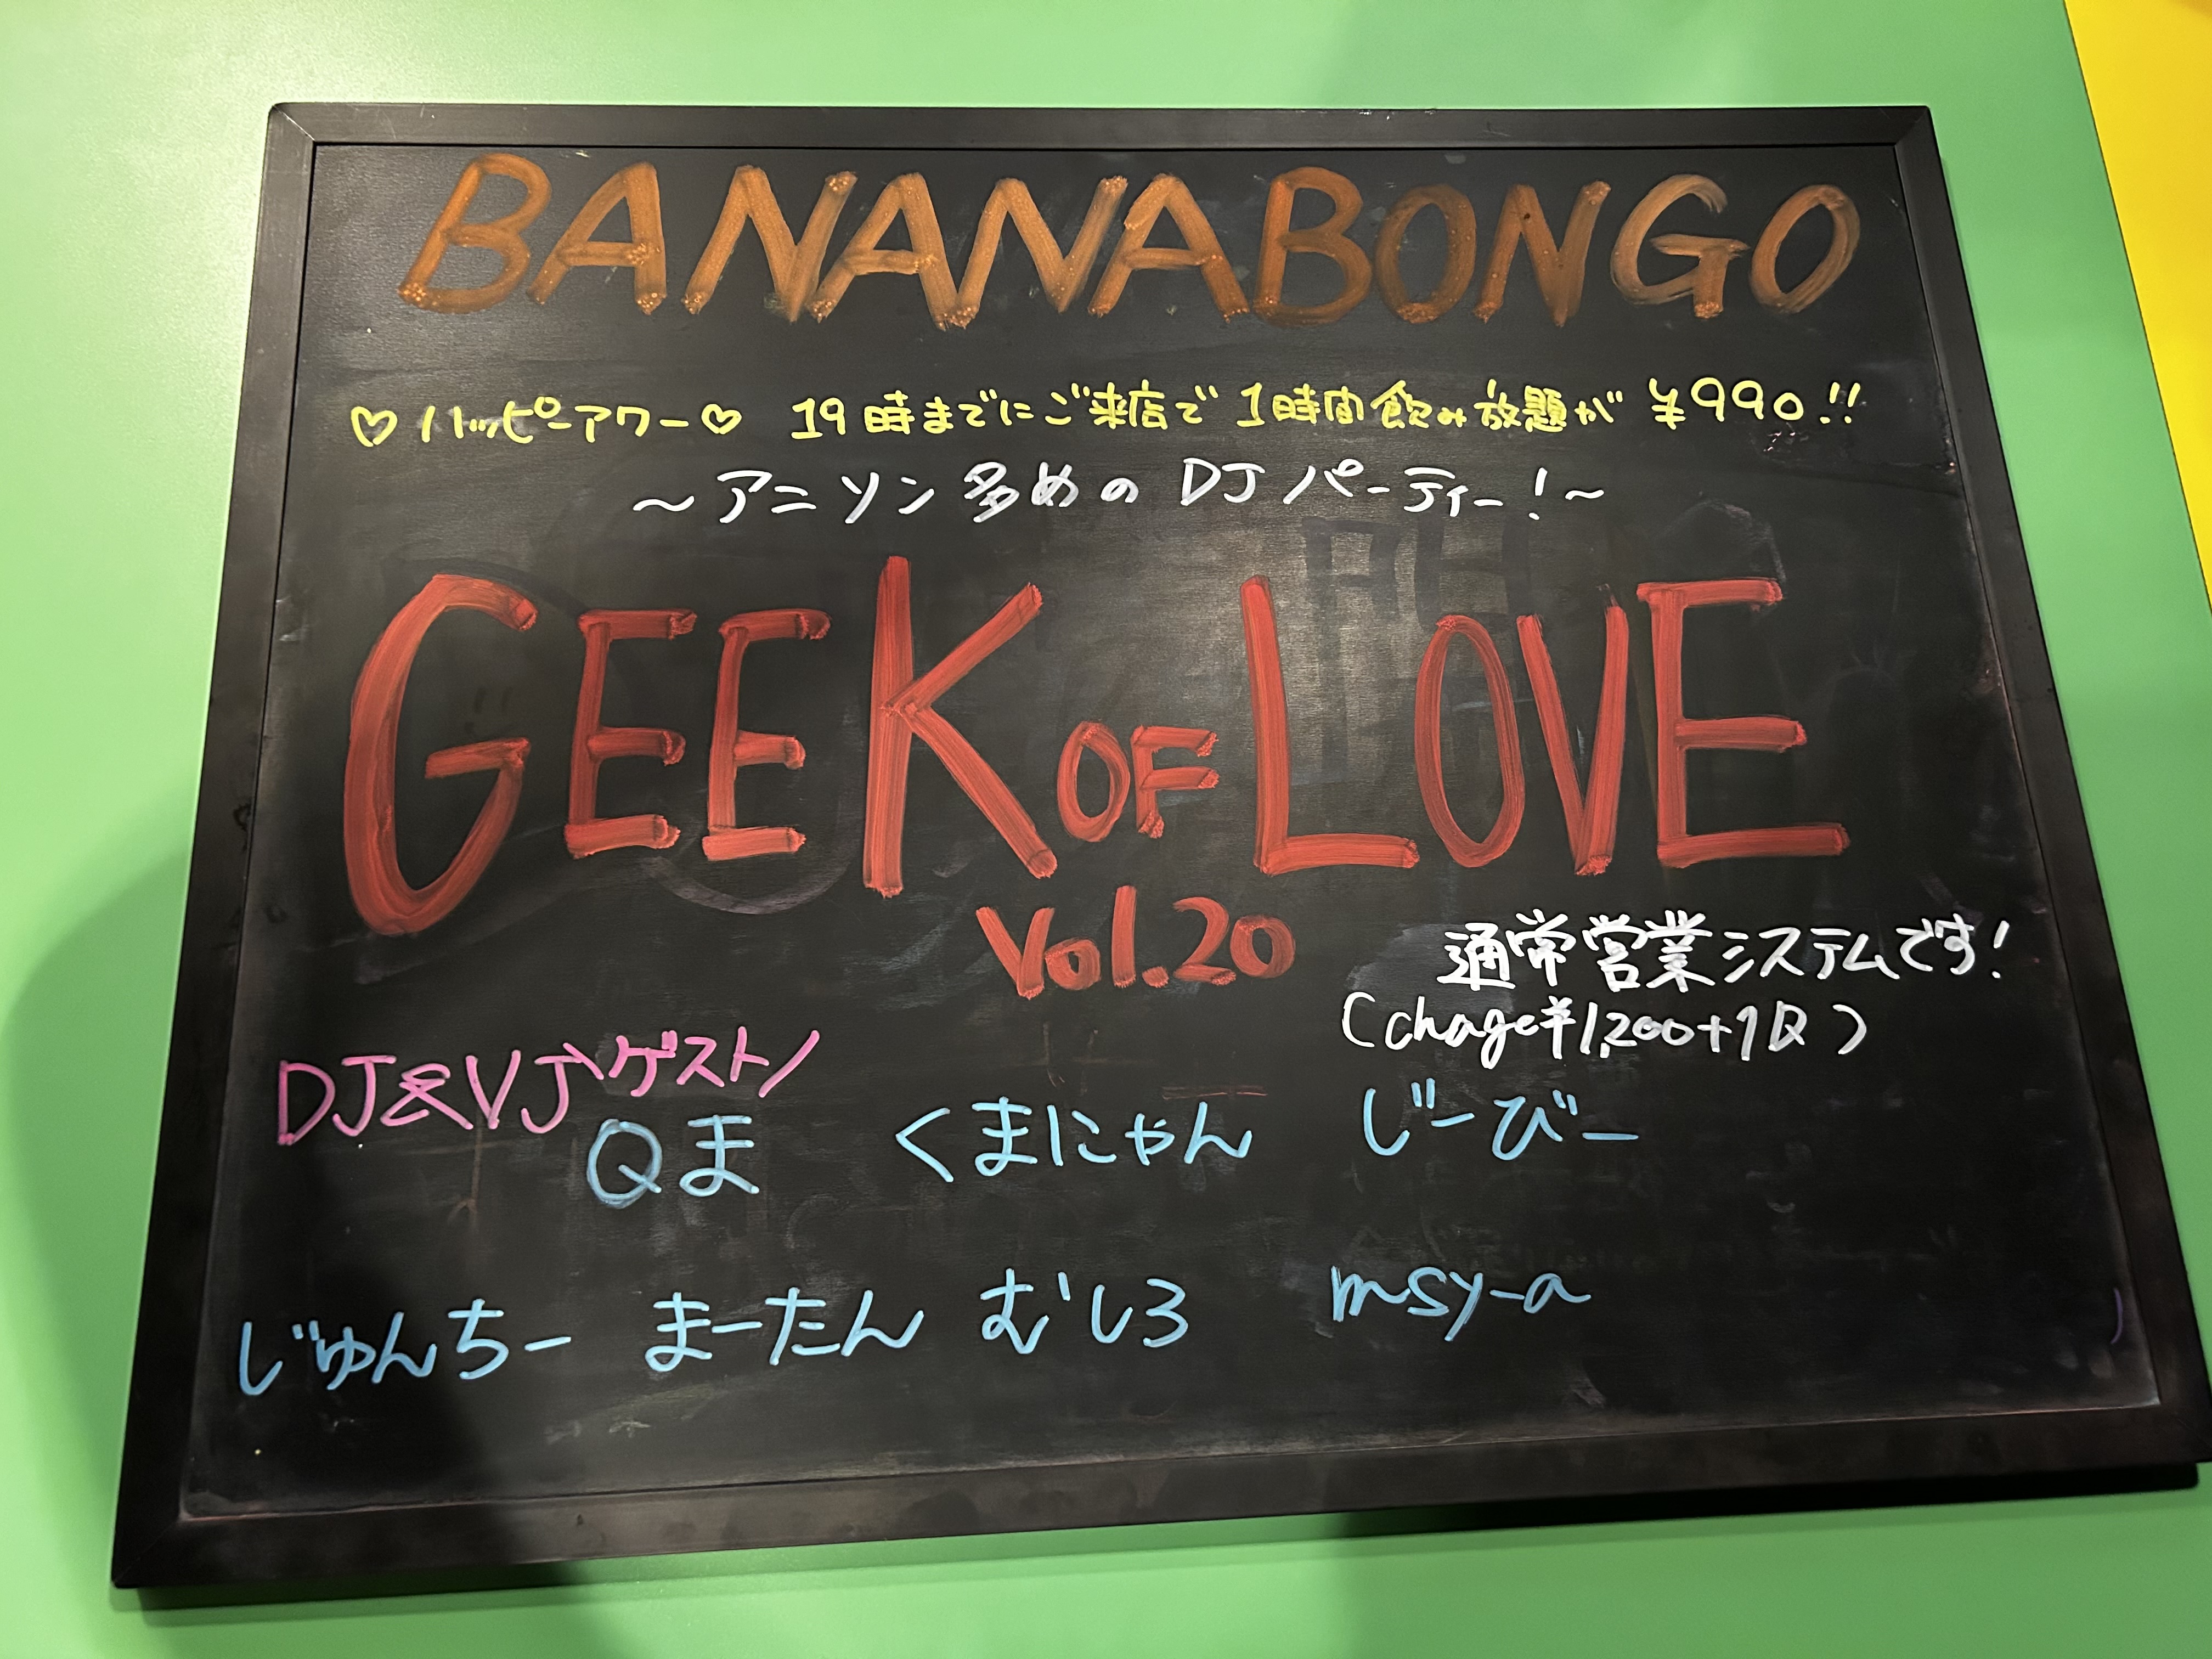 BANANABONGO
♡ハッピーアワー♡ 19時までにご来店で1時間飲み放題が ¥990!!
～アニソン多めのDJパーティー!～
GEEK OF LOVE
Vol.20
通常営業システムです!
(chage¥1,200+1D)
DJ&VJ\ゲスト/
Qま くまにゃん じーびー
じゅんちー まーたん むしろ msy-a